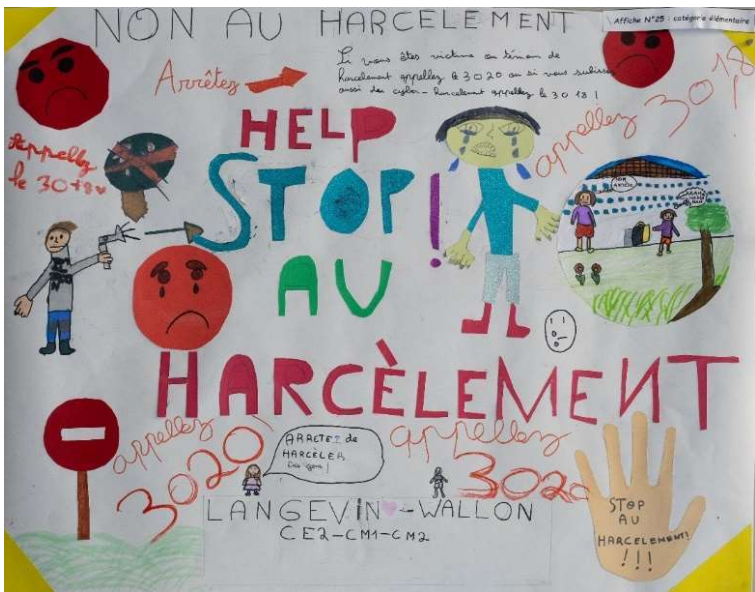 NON AU HARCELEMENT
Affiche N°25 : catégorie élémentaire
Si vous êtes victime ou témoin de
harcelement appellez le 3020 ou si vous subissez
aussi du cyber-harcelement appellez le 3018 !
Arrêtez
appellez 3018 !
Appellez
le 3018
HELP
STOP !
AU
HARCÈLEMENT
appellez
3020 !
ARRETEZ de
HARCELER
appellez
3020
LANGEVIN-WALLON
CE2-CM1-CM2
STOP
AU
HARCELEMENT!
!!!